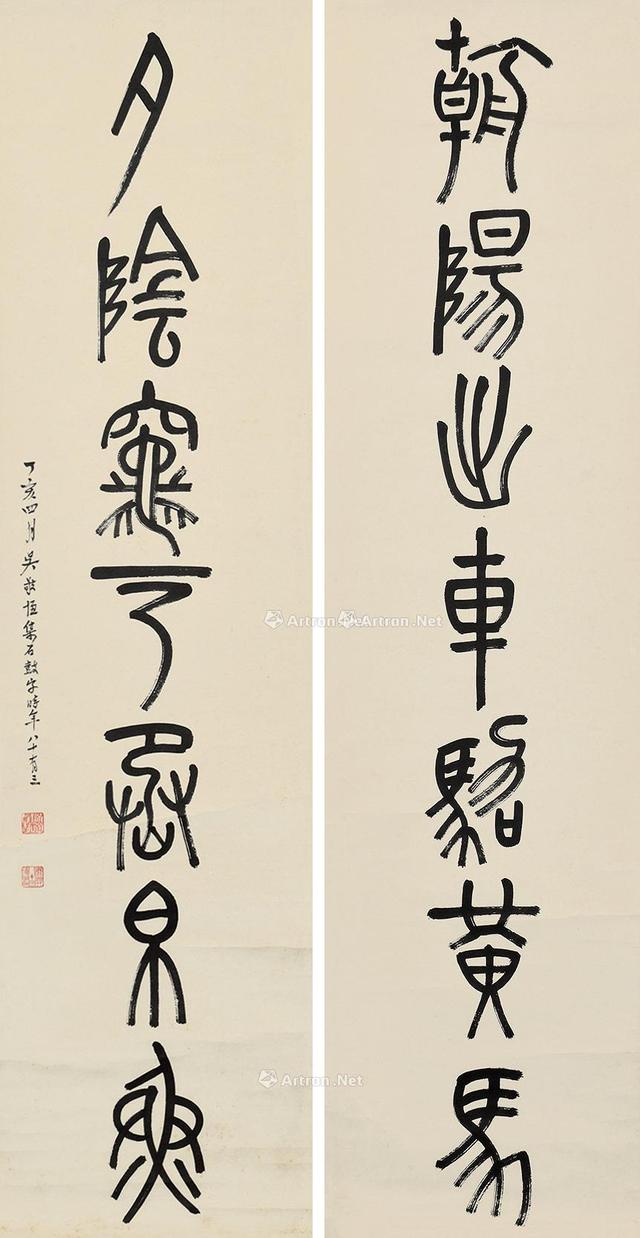 朝陽出車駱黃馬
夕陰帛魚
丁亥四月吳敬恒集石鼓字時年八十有三
Artron.Net
Artron.Net
Artron.Net